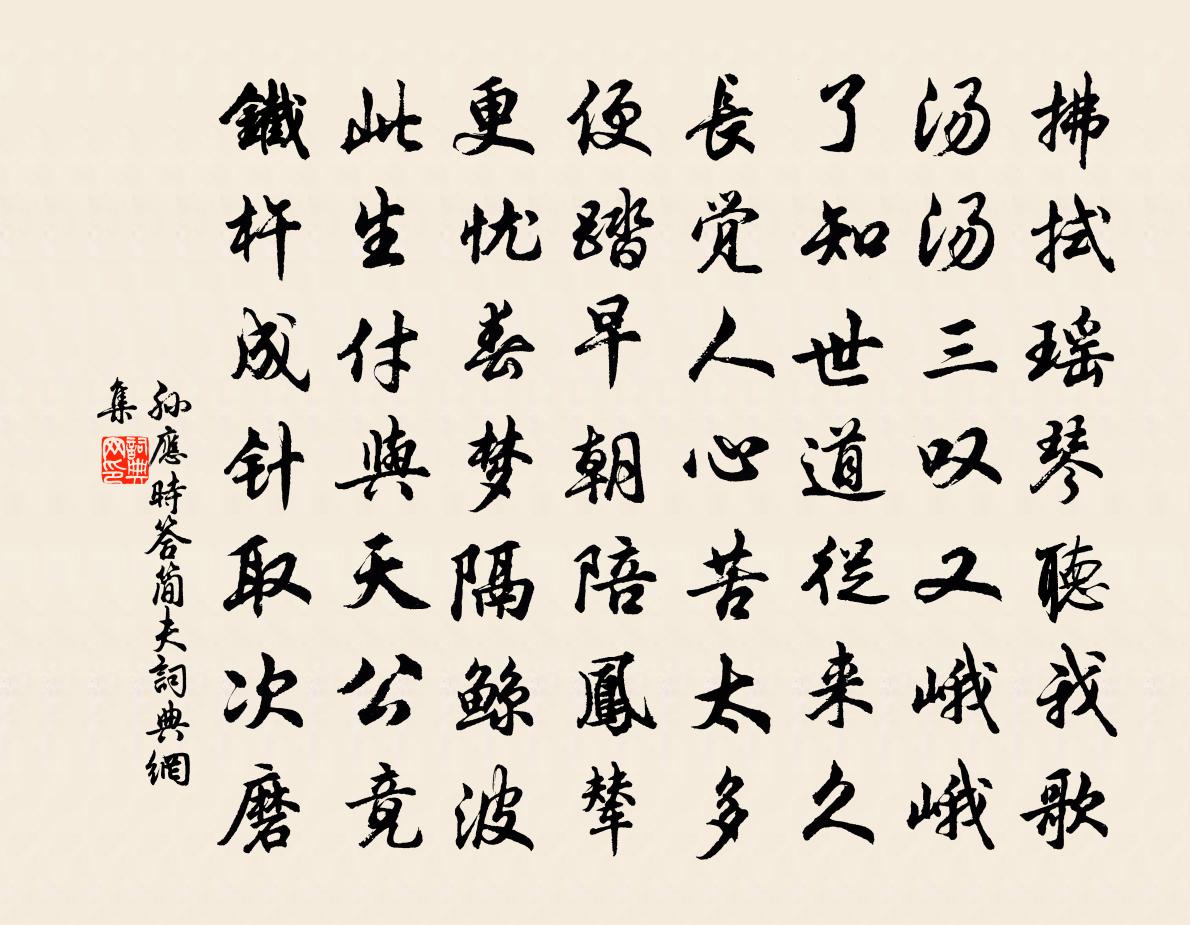 拂拭瑶琴聽我歌
汤汤三叹又峨峨
了知世道從来久
長觉人心苦太多
便踏早朝陪鳳輦
更忧春梦隔鲸波
此生付與天公竟
鐵杵成针取次磨
孙應時答简夫詞典網
集
詞典
网印